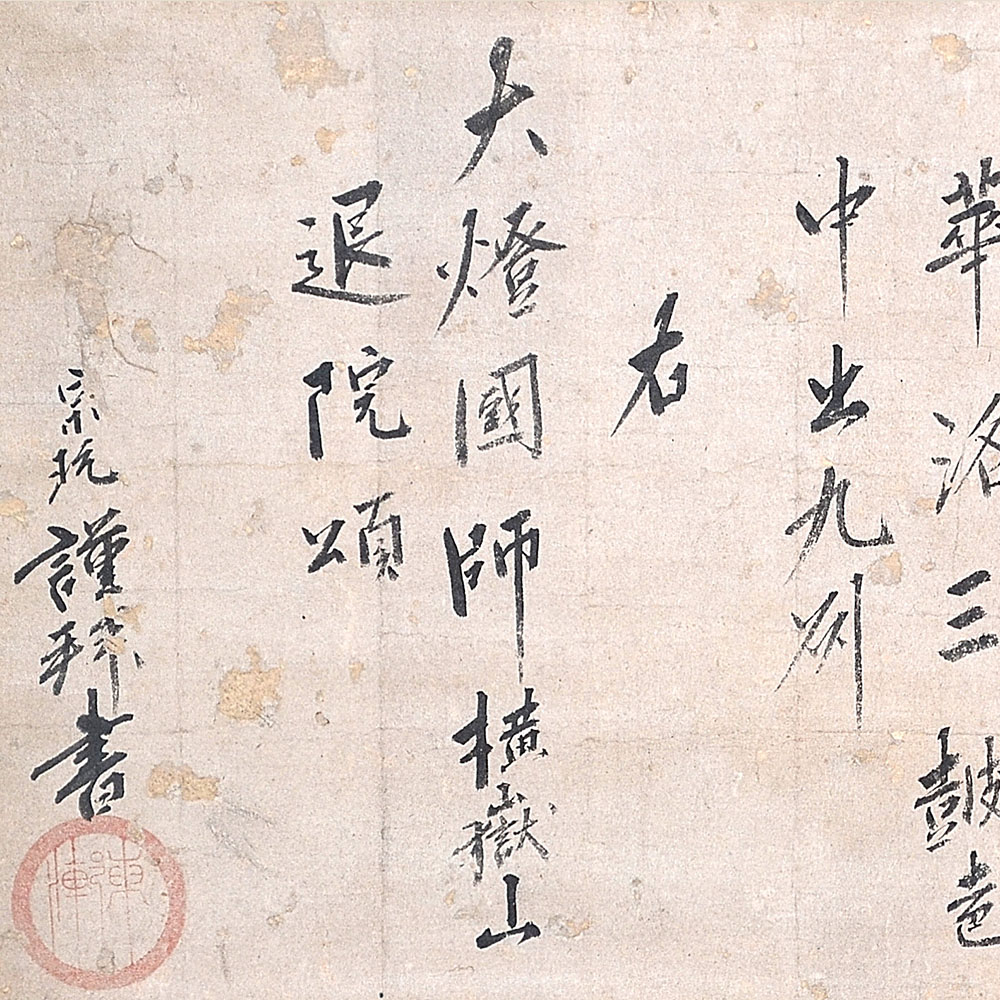 華洛三皷
中出九州
右
大燈國師横嶽山
退院頌
宗抗謹拜書